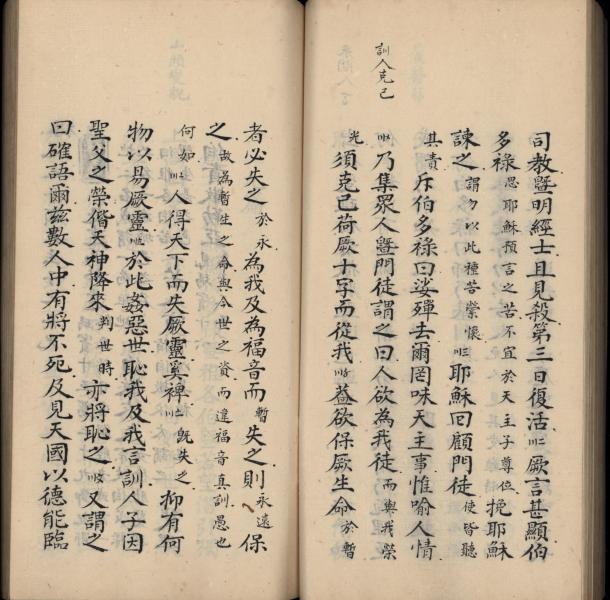 訓人克己
司教暨明經士且見殺第三日復活厥言甚顯伯
多祿思耶穌預言之苦不宜於天主子尊位挽耶穌
諫之謂勿以此種苦縈懷耶穌回顧門徒使皆聽
其責斥伯多祿曰娑殫去爾罔味天主事惟喻人情
乃集眾人暨門徒謂之曰人欲為我徒而與我榮
光須克己荷厥十字而從我蓋欲保厥生命於暫
者必失之於永為我及為福音而暫失之則永遠保
之故為暫生之命與今世之資而違福音真訓愚也
何如人得天下而失厥靈奚裨既失之抑有何
物以易厥靈於此姦惡世恥我及我言訓人子因
聖父之榮偕天神降來判世時亦將恥之又謂之
曰確語爾茲數人中有將不死及見天國以德能臨